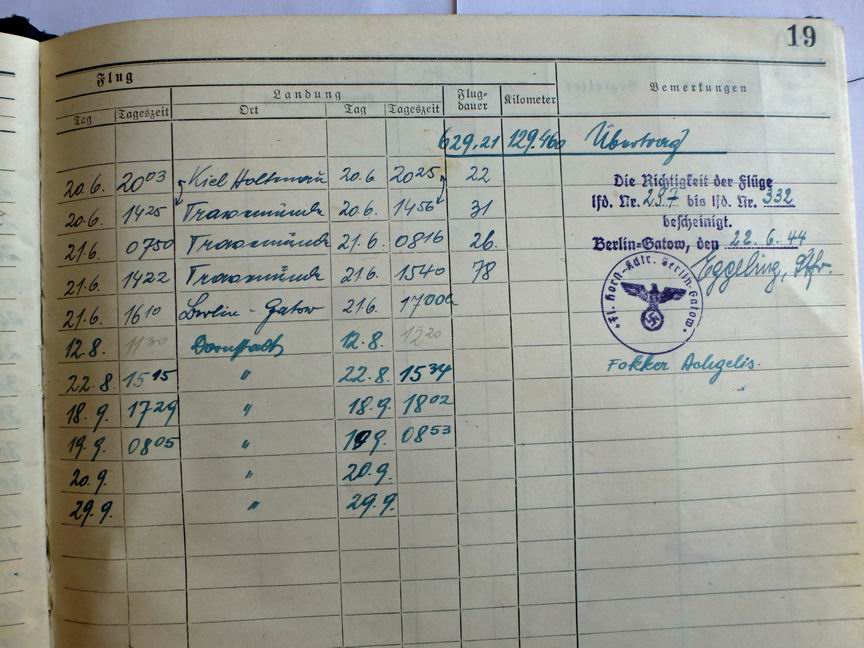 19
Flug
Landung
Flug-
dauer
Kilometer
Bemerkungen
Tag Tageszeit Ort Tag Tageszeit
629.21 129.460 Übertrag
20.6. 20 03 Kiel Holtenau 20.6. 20 25 22
20.6. 14 25 Travemünde 20.6. 14 56 31
21.6. 07 50 Travemünde 21.6. 08 16 26.
21.6. 14 22 Travemünde 21.6. 15 40 78
21.6. 16 10 Berlin-Gatow 21.6. 17 00
12.8. 11 30 Dornstadt 12.8. 12 20
22.8. 15 15 " 22.8. 15 34
18.9. 17 29 " 18.9. 18 02
19.9. 08 05 " 19.9. 08 53
20.9. " 20.9.
29.9. " 29.9.
Die Richtigkeit der Flüge
lfd. Nr. 297 bis lfd. Nr. 332
bescheinigt.
Berlin-Gatow, den 22.6.44
Eggeling,
Fl. Horst-Kdtr. Berlin-Gatow
Fokker Achgelis.